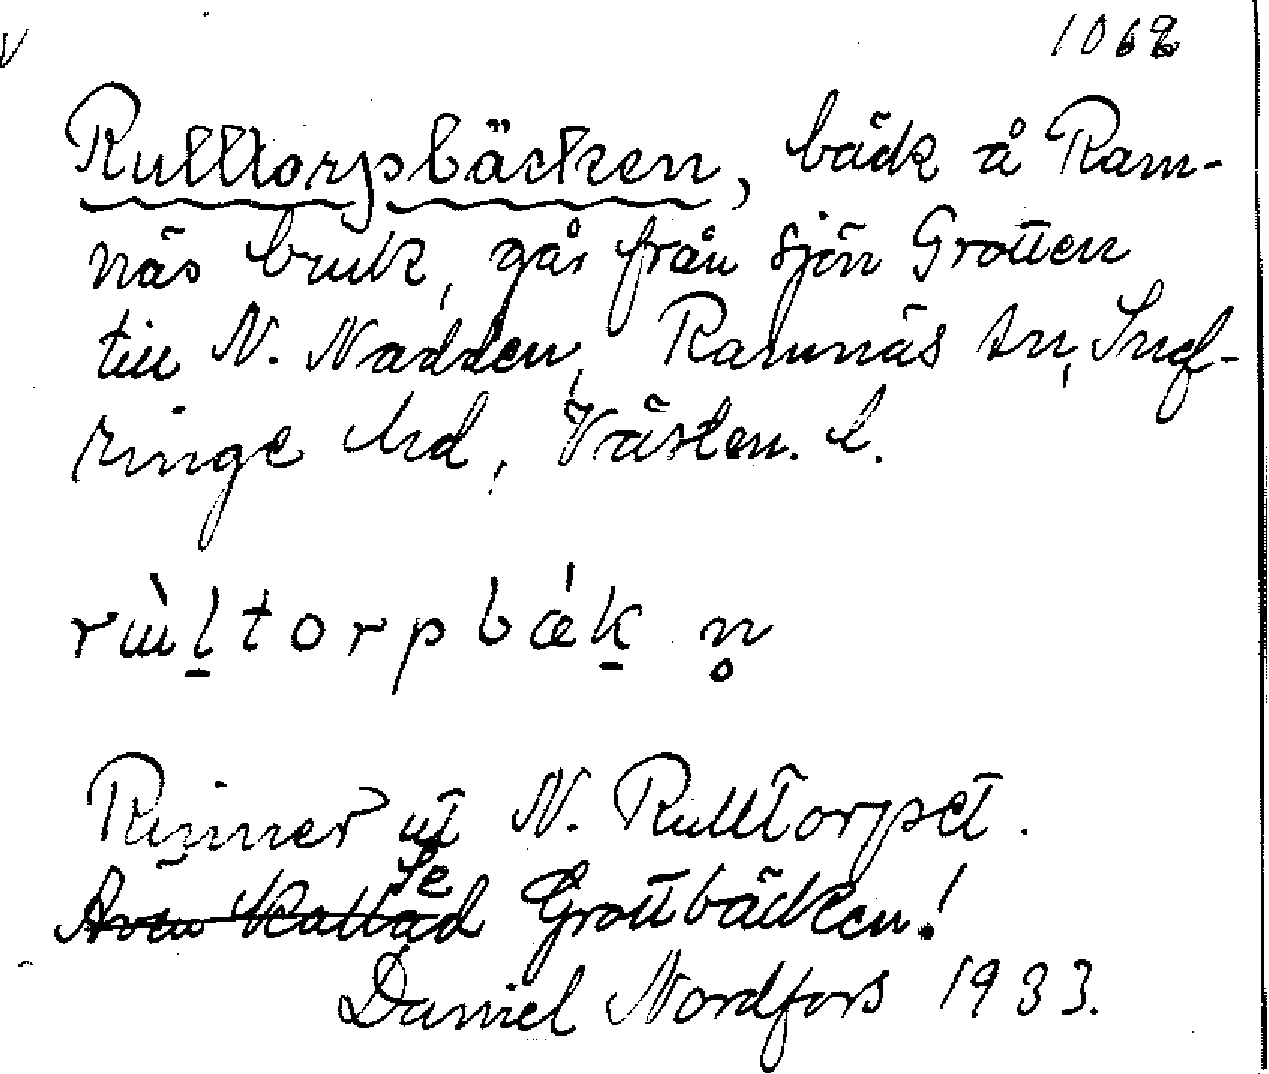 V 1068
Rulltorpsbäcken, bäck å Ram-
näs bruk, går från sjön Grotten
till N. Nadden, Ramnäs sn, Snef-
ringe hd, Västm. l.
rùltorpbǽk n̥
Rinner ut N. Rulltorpet.
Även kallad Se Grottbäcken!
Daniel Nordfors 1933.